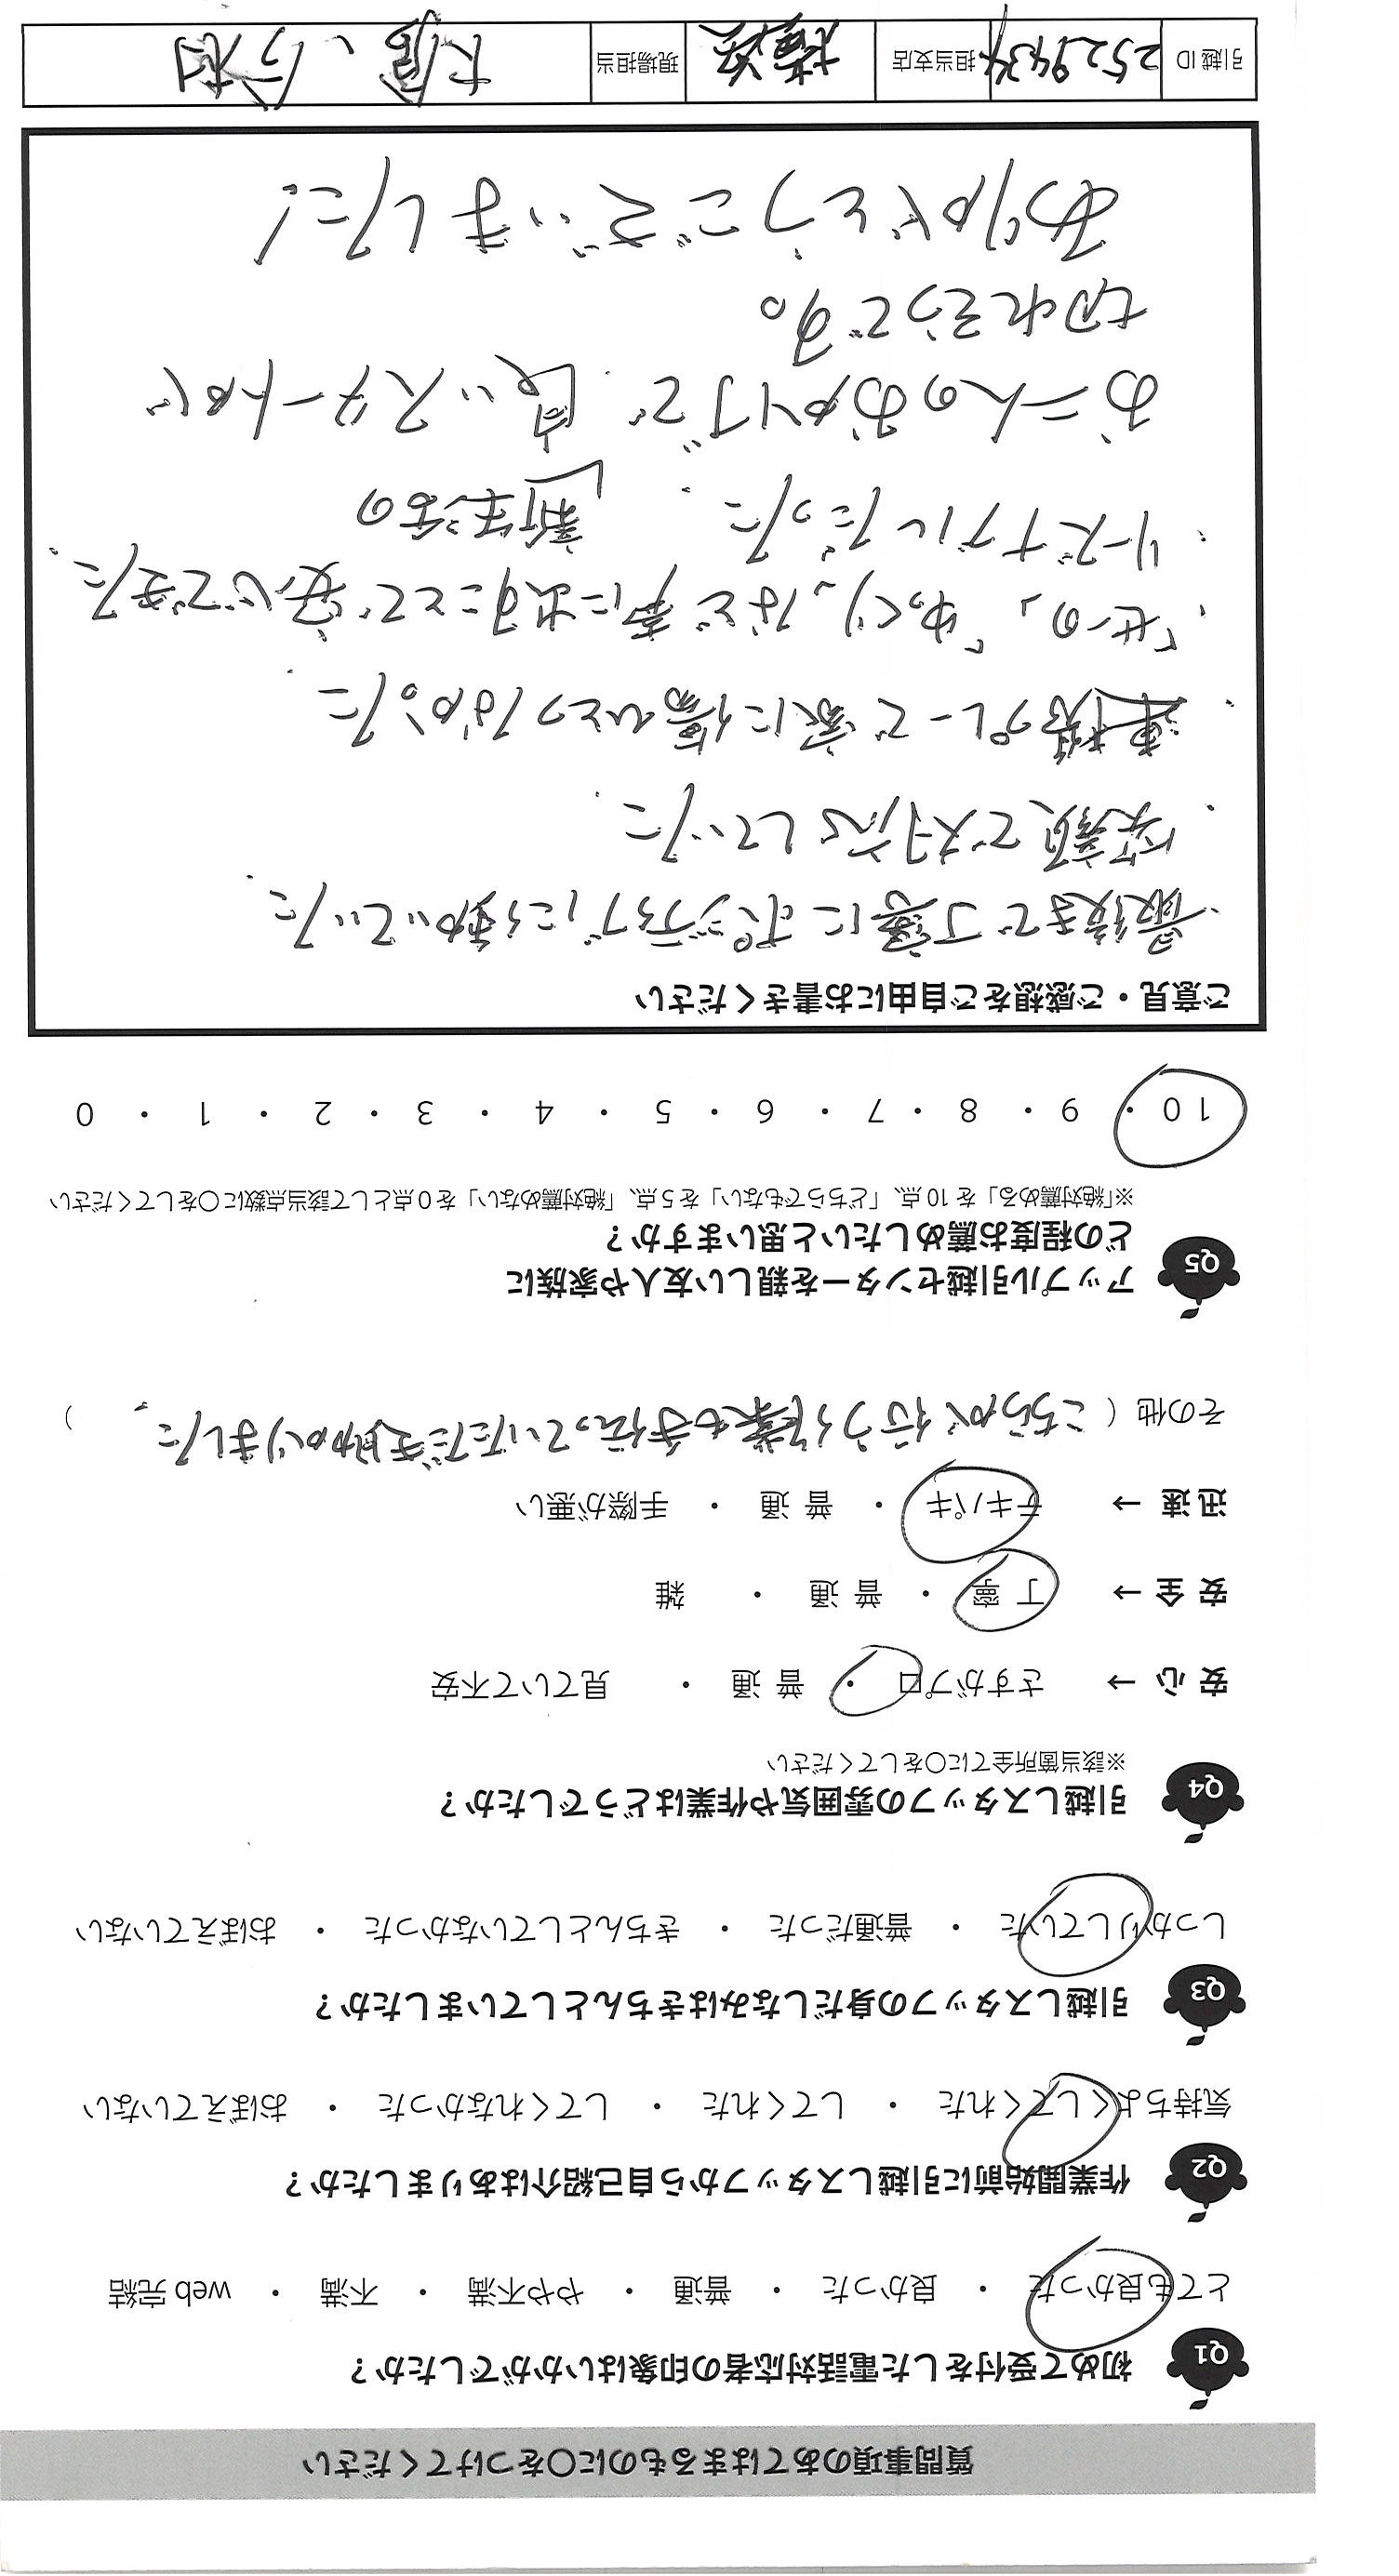 質問事項のあてはまるものに○をつけてください
Q1 初めて受付をした電話対応者の印象はいかがでしたか？
とても良かった ・ 良かった ・ 普通 ・ やや不満 ・ 不満 ・ web 完結
Q2 作業開始前に引越しスタッフから自己紹介はありましたか？
気持ちよくしてくれた ・ してくれた ・ してくれなかった ・ おぼえていない
Q3 引越しスタッフの身だしなみはきちんとしていましたか？
しっかりしていた ・ 普通だった ・ きちんとしていなかった ・ おぼえていない
Q4 引越しスタッフの雰囲気や作業はどうでしたか？
※該当箇所全てに○をしてください
安心 → さすがプロ ・ 普通 ・ 見ていて不安
安全 → 丁寧 ・ 普通 ・ 雑
迅速 → テキパキ ・ 普通 ・ 手際が悪い
その他（ こちらが行う作業も手伝っていただき助かりました。 ）
Q5 アップル引越センターを親しい友人や家族に
どの程度お薦めしたいと思いますか？
※「絶対薦める」を 10 点、「どちらでもない」を 5 点、「絶対薦めない」を 0 点として該当点数に○をしてください
10 ・ 9 ・ 8 ・ 7 ・ 6 ・ 5 ・ 4 ・ 3 ・ 2 ・ 1 ・ 0
ご意見・ご感想をご自由にお書きください
・最後まで丁寧にポジティブに働いていた。
・笑顔で対応していた。
・連携プレーで家に傷ひとつなかった。
・「せーの」「ゆっくり」など声に出すことで安心できた。
・リーズナブルだった。
新生活の
お二人のおかげで良いスタートが
切れそうです。
ありがとうございました!
引越 ID 2529434 担当支店 横浜 現場担当 大尾、今村